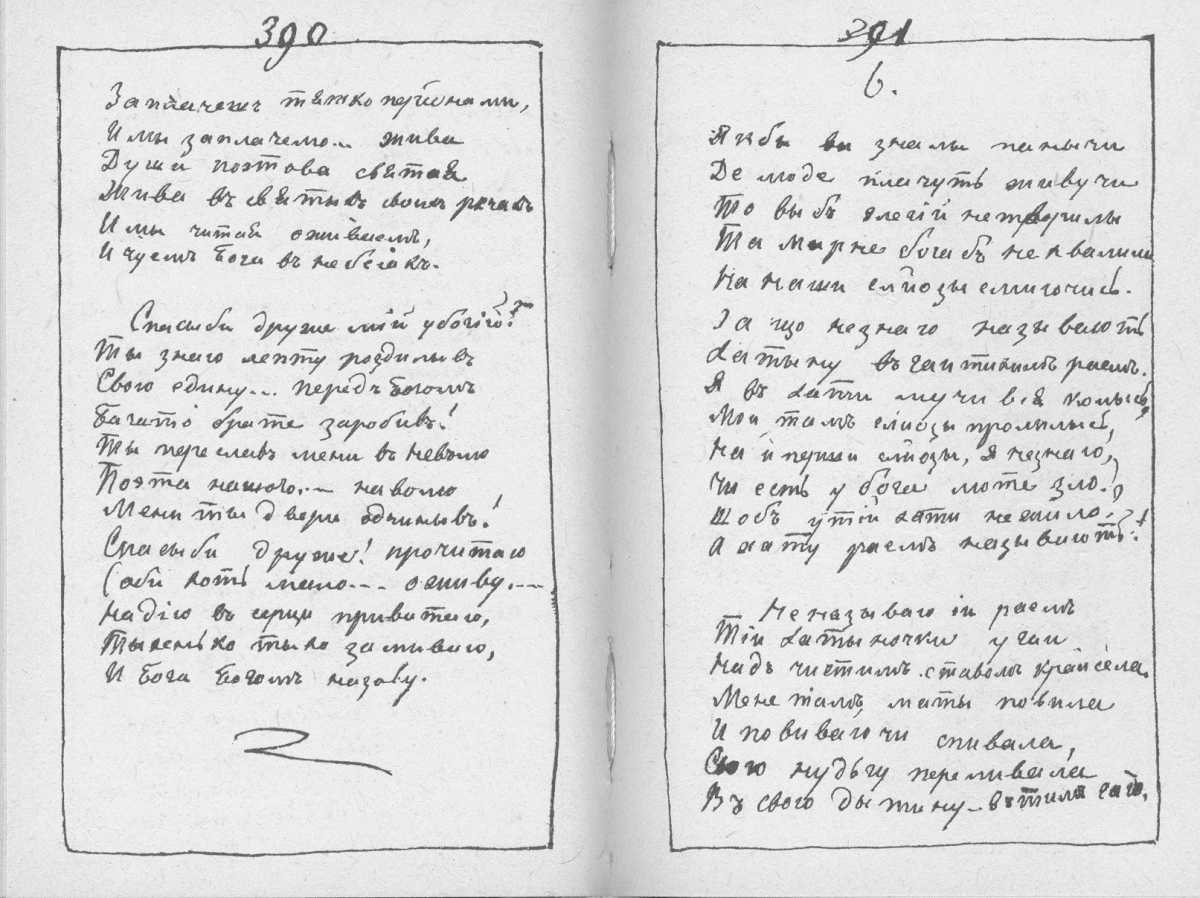 390
Заплачешъ тяжко перйонами,
И мы заплачемо... жива
Душа поэтова святая
Жива въ святыхъ своихъ речахъ
И мы читая оживаемъ,
И чуемъ Бога въ небесахъ.
Спасыби друже мій убогій!
Ты знаю лепту роздиливъ
Свою едину... передъ Богомъ
Багатіо брате заробивъ!
Ты переславъ мени въ неволю
Поэта нашого... на волю
Мени ты двери одчинывъ!
Спасыби друже! прочитаю
Соби хоть мало... оживу...
Надію въ серци привитаю,
Тыхенько тыхо заспиваю,
И Бога Богомъ назову.
391
6.
Якбы вы зналы панычи
Де люде плачуть живучи
То выбъ элегій нетворилы
Та марне бога бъ нехвалили
На наши сліозы сміючись.
За що незнаю называють
Хатыну въ гаи тихимъ раемъ.
Я въ хати мучився колысь,
Мои тамъ сліозы пролились,
Найперши сліозы, я незнаю,
Чи есть у бога люте зло?
Щобъ утій хати нежило?
А хату раемъ называють!
Неназываю іи раемъ
Тіи хатыночки угаи
Надъ чистимъ ставомъ край села.
Мене тамъ маты повила
И повиваючи спивала,
Свою нудьгу переливала
Въ свою дытину...